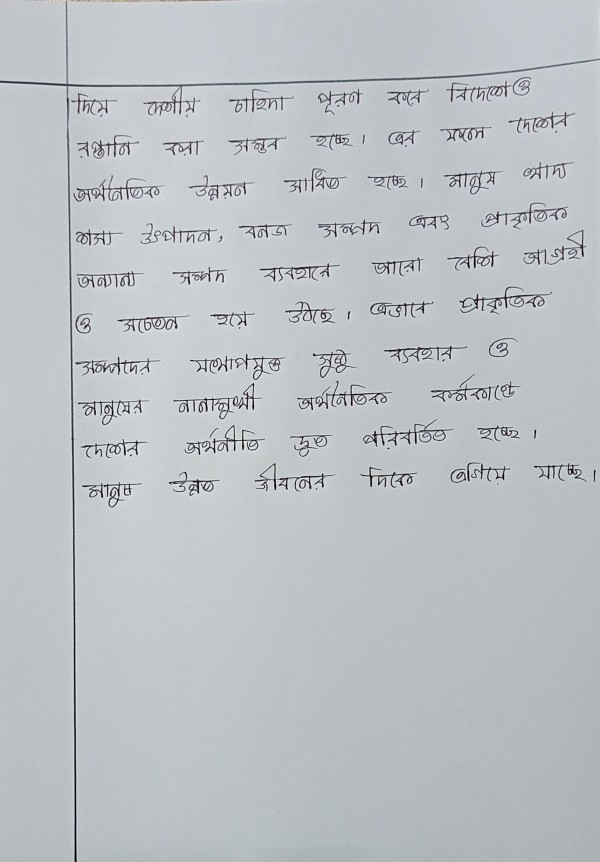 দিয়ে দেশীয় চাহিদা পূরণ করে বিদেশেও
রপ্তানি করা সম্ভব হচ্ছে। এর ফলে দেশের
অর্থনৈতিক উন্নয়ন সাধিত হচ্ছে। মানুষ খাদ্য
শস্য উৎপাদন, বনজ সম্পদ এবং প্রাকৃতিক
অন্যান্য সম্পদ ব্যবহারে আরো বেশি আগ্রহী
ও সচেতন হয়ে উঠছে। এভাবে প্রাকৃতিক
সম্পদের যথোপযুক্ত সুষ্ঠু ব্যবহার ও
মানুষের নানামুখী অর্থনৈতিক কর্মকাণ্ডে
দেশের অর্থনীতি দ্রুত পরিবর্তিত হচ্ছে।
মানুষ উন্নত জীবনের দিকে এগিয়ে যাচ্ছে।